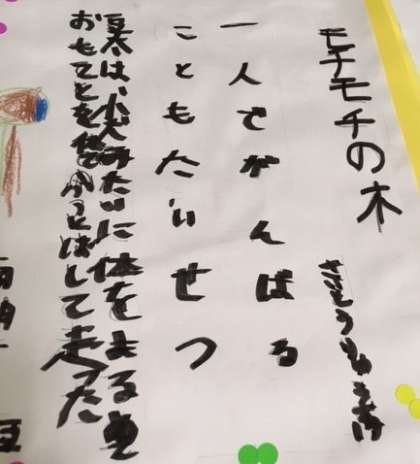 モチモチの木
さいとうりゅうすけ
一人でがんばる
こともたいせつ
豆太は、小犬みたいに体をまる
おもてとを体でふっとばして走った